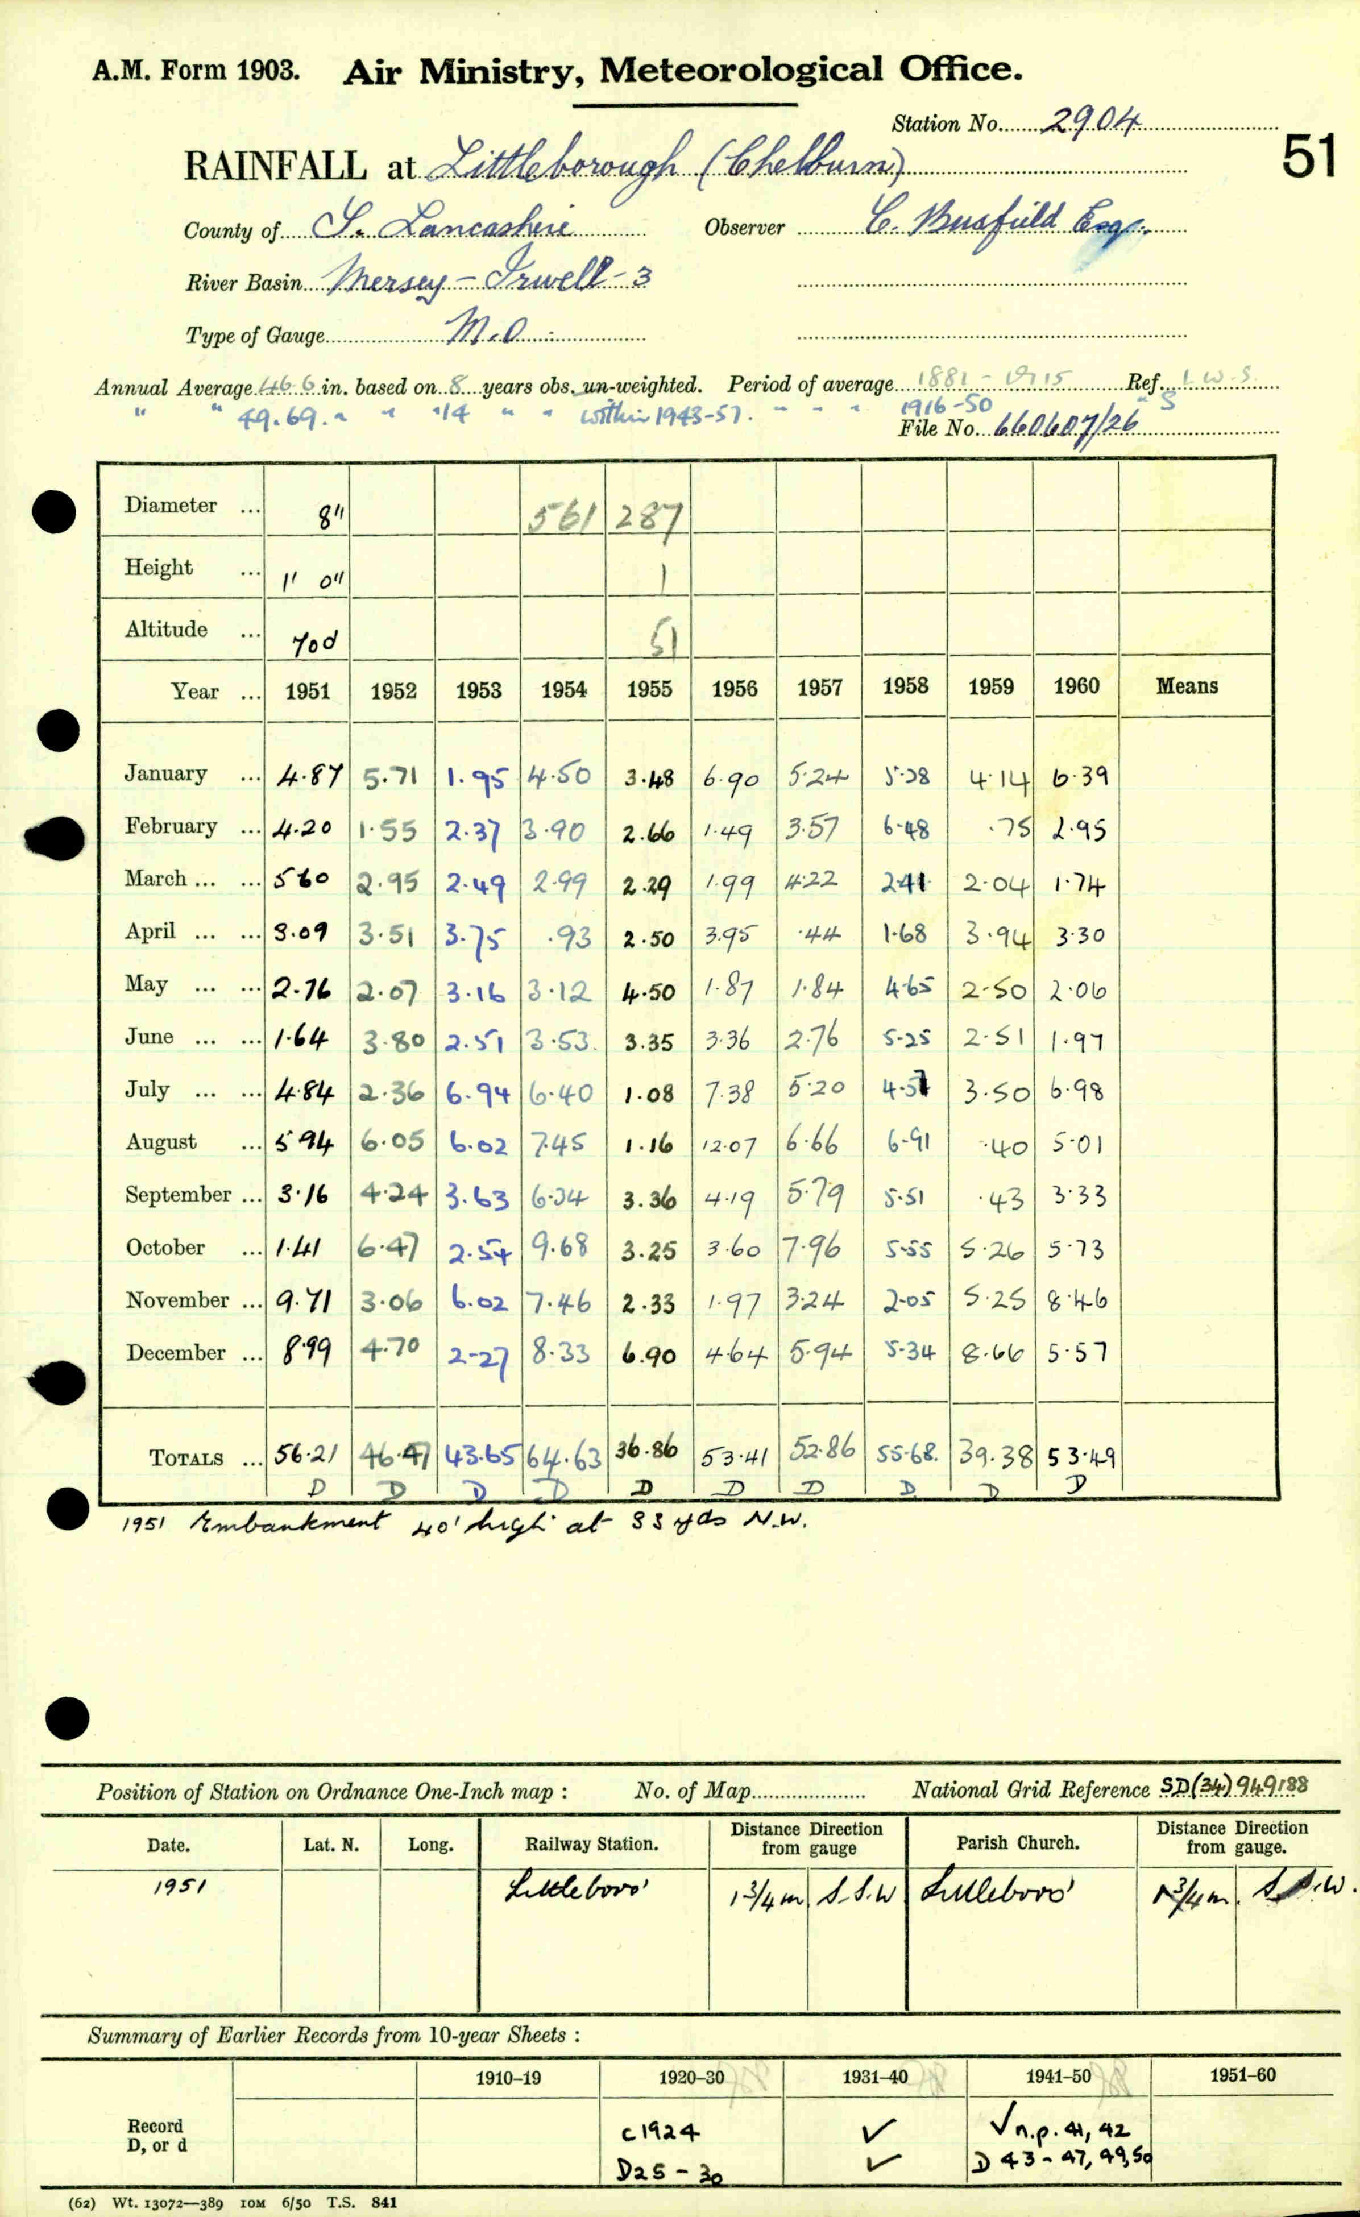 A.M. Form 1903. Air Ministry, Meteorological Office.
Station No. 2904
51
RAINFALL at Littleborough (Chelburn)
County of S. Lancashire Observer C. Busfield Esq.
River Basin Mersey - Irwell - 3
Type of Gauge M.O.
Annual Average 46.6 in. based on 8 years obs. un-weighted. Period of average 1881 - 1915 Ref. I.W.S.
" " 49.69. " " 14 " " within 1943-57. " - - " 1916-50 " S
File No. 660607/26
Diameter ... 8" 561 287
Height ... 1' 0" 1
Altitude ... 700 51
Year ... 1951 1952 1953 1954 1955 1956 1957 1958 1959 1960 Means
January ... 4.87 5.71 1.95 4.50 3.48 6.90 5.24 5.28 4.14 6.39
February ... 4.20 1.55 2.37 3.90 2.66 1.49 3.57 6.48 .75 2.95
March ... ... 5 60 2.95 2.49 2.99 2.29 1.99 4.22 2.41 2.04 1.74
April ... ... 3.09 3.51 3.75 .93 2.50 3.95 .44 1.68 3.94 3.30
May ... ... 2.76 2.07 3.16 3.12 4.50 1.87 1.84 4.65 2.50 2.06
June ... ... 1.64 3.80 2.51 3.53 3.35 3.36 2.76 5.25 2.51 1.97
July ... ... 4.84 2.36 6.94 6.40 1.08 7.38 5.20 4.57 3.50 6.98
August ... 5 94 6.05 6.02 7.45 1.16 12.07 6.66 6.91 .40 5.01
September ... 3.16 4.24 3.63 6.34 3.36 4.19 5.79 5.51 .43 3.33
October ... 1.41 6.47 2.54 9.68 3.25 3.60 7.96 5.55 5.26 5.73
November ... 9.71 3.06 6.02 7.46 2.33 1.97 3.24 2.05 5.25 8.46
December ... 8.99 4.70 2.27 8.33 6.90 4.64 5.94 5.34 8.66 5.57
TOTALS ... 56.21 46.47 43.65 64.63 36.86 53.41 52.86 55.68. 39.38 53.49
D D D D D D D D D D
1951 Embankment 40' high at 33 yds N.W.
Position of Station on Ordnance One-Inch map : No. of Map National Grid Reference SD(34)949188
Date. Lat. N. Long. Railway Station. Distance Direction from gauge Parish Church. Distance Direction from gauge.
1951 Littleboro' 1 3/4 m. S.S.W Littleboro' 1 3/4 m. S.S.W.
Summary of Earlier Records from 10-year Sheets :
1910–19 1920–30 1931–40 1941–50 1951–60
Record c1924 ✓ ✓ n.p. 41, 42
D, or d D25 - 30 ✓ D 43 - 47, 49,50
(62) Wt. 13072—389 10M 6/50 T.S. 841